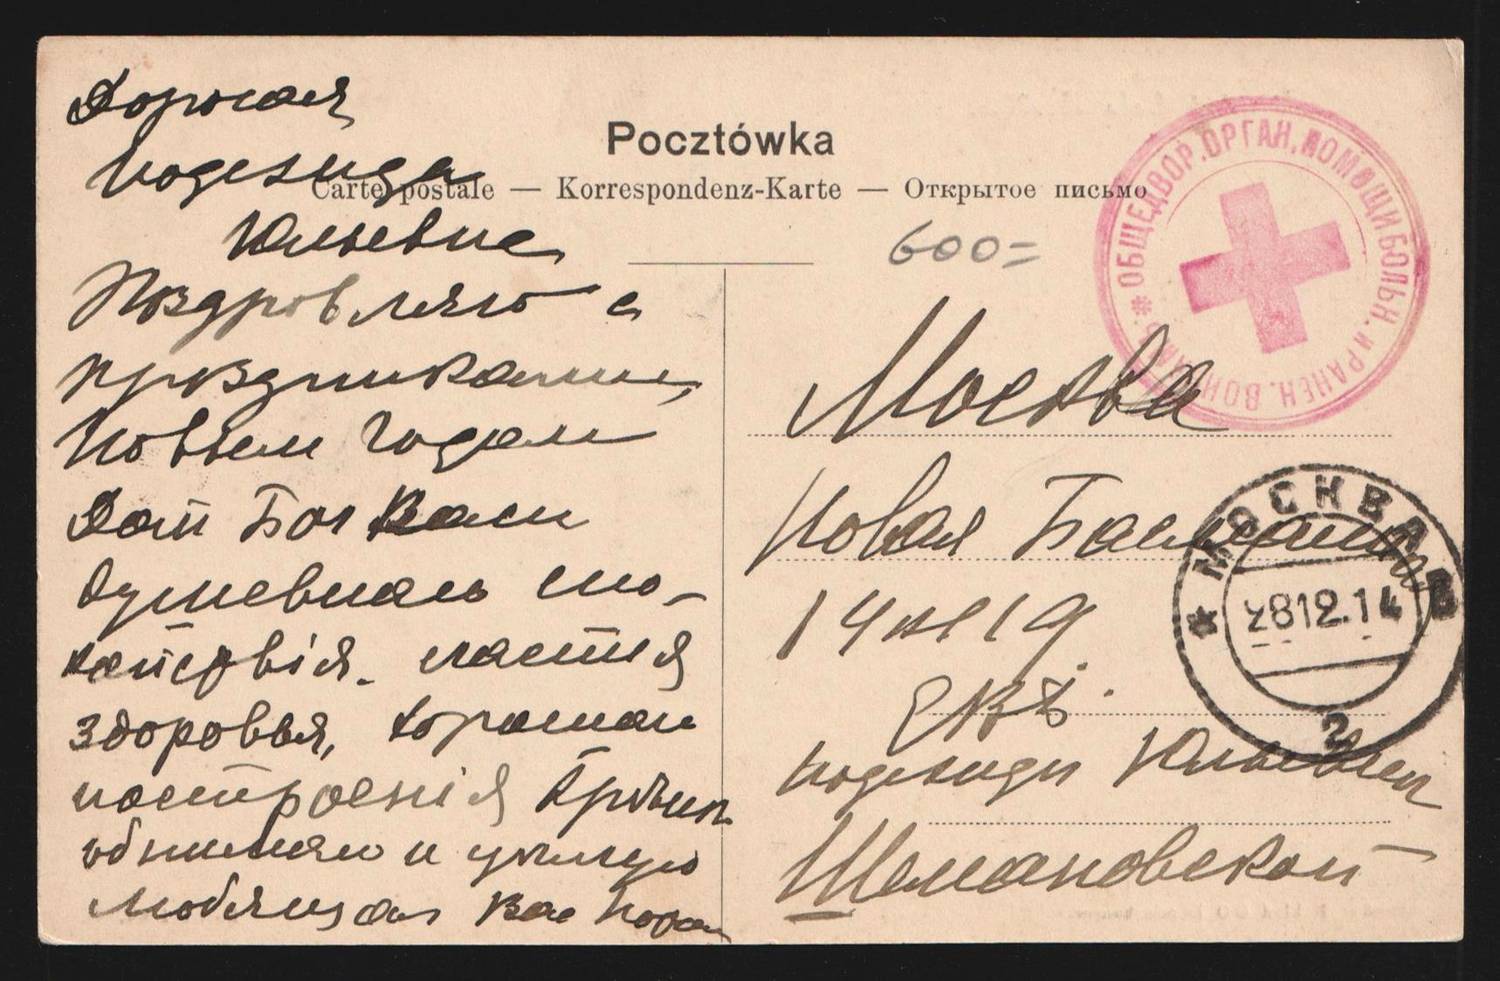 Дорогая
Надежида
Юльевна
Поздровляю с
праздниками,
Новым Годом
Дай Бог Вам
душевнаго спо-
койствія, счастія
здоровья, хорошаго
настроенія Крѣпко
обнимаю и цѣлую
любящая Вас Нора
Pocztówka
Carte postale — Korrespondenz-Karte — Открытое письмо
600=
* ОБЩЕДВОР. ОРГАН. ПОМОЩИ БОЛЬН. и РАНЕН. ВОИНАМЪ.
Москва
Новая Басманная
14 кв 19
ЕВБ.
Надежиди Юльевнѣ
Шемановской
* МОСКВА
28 12.14
2